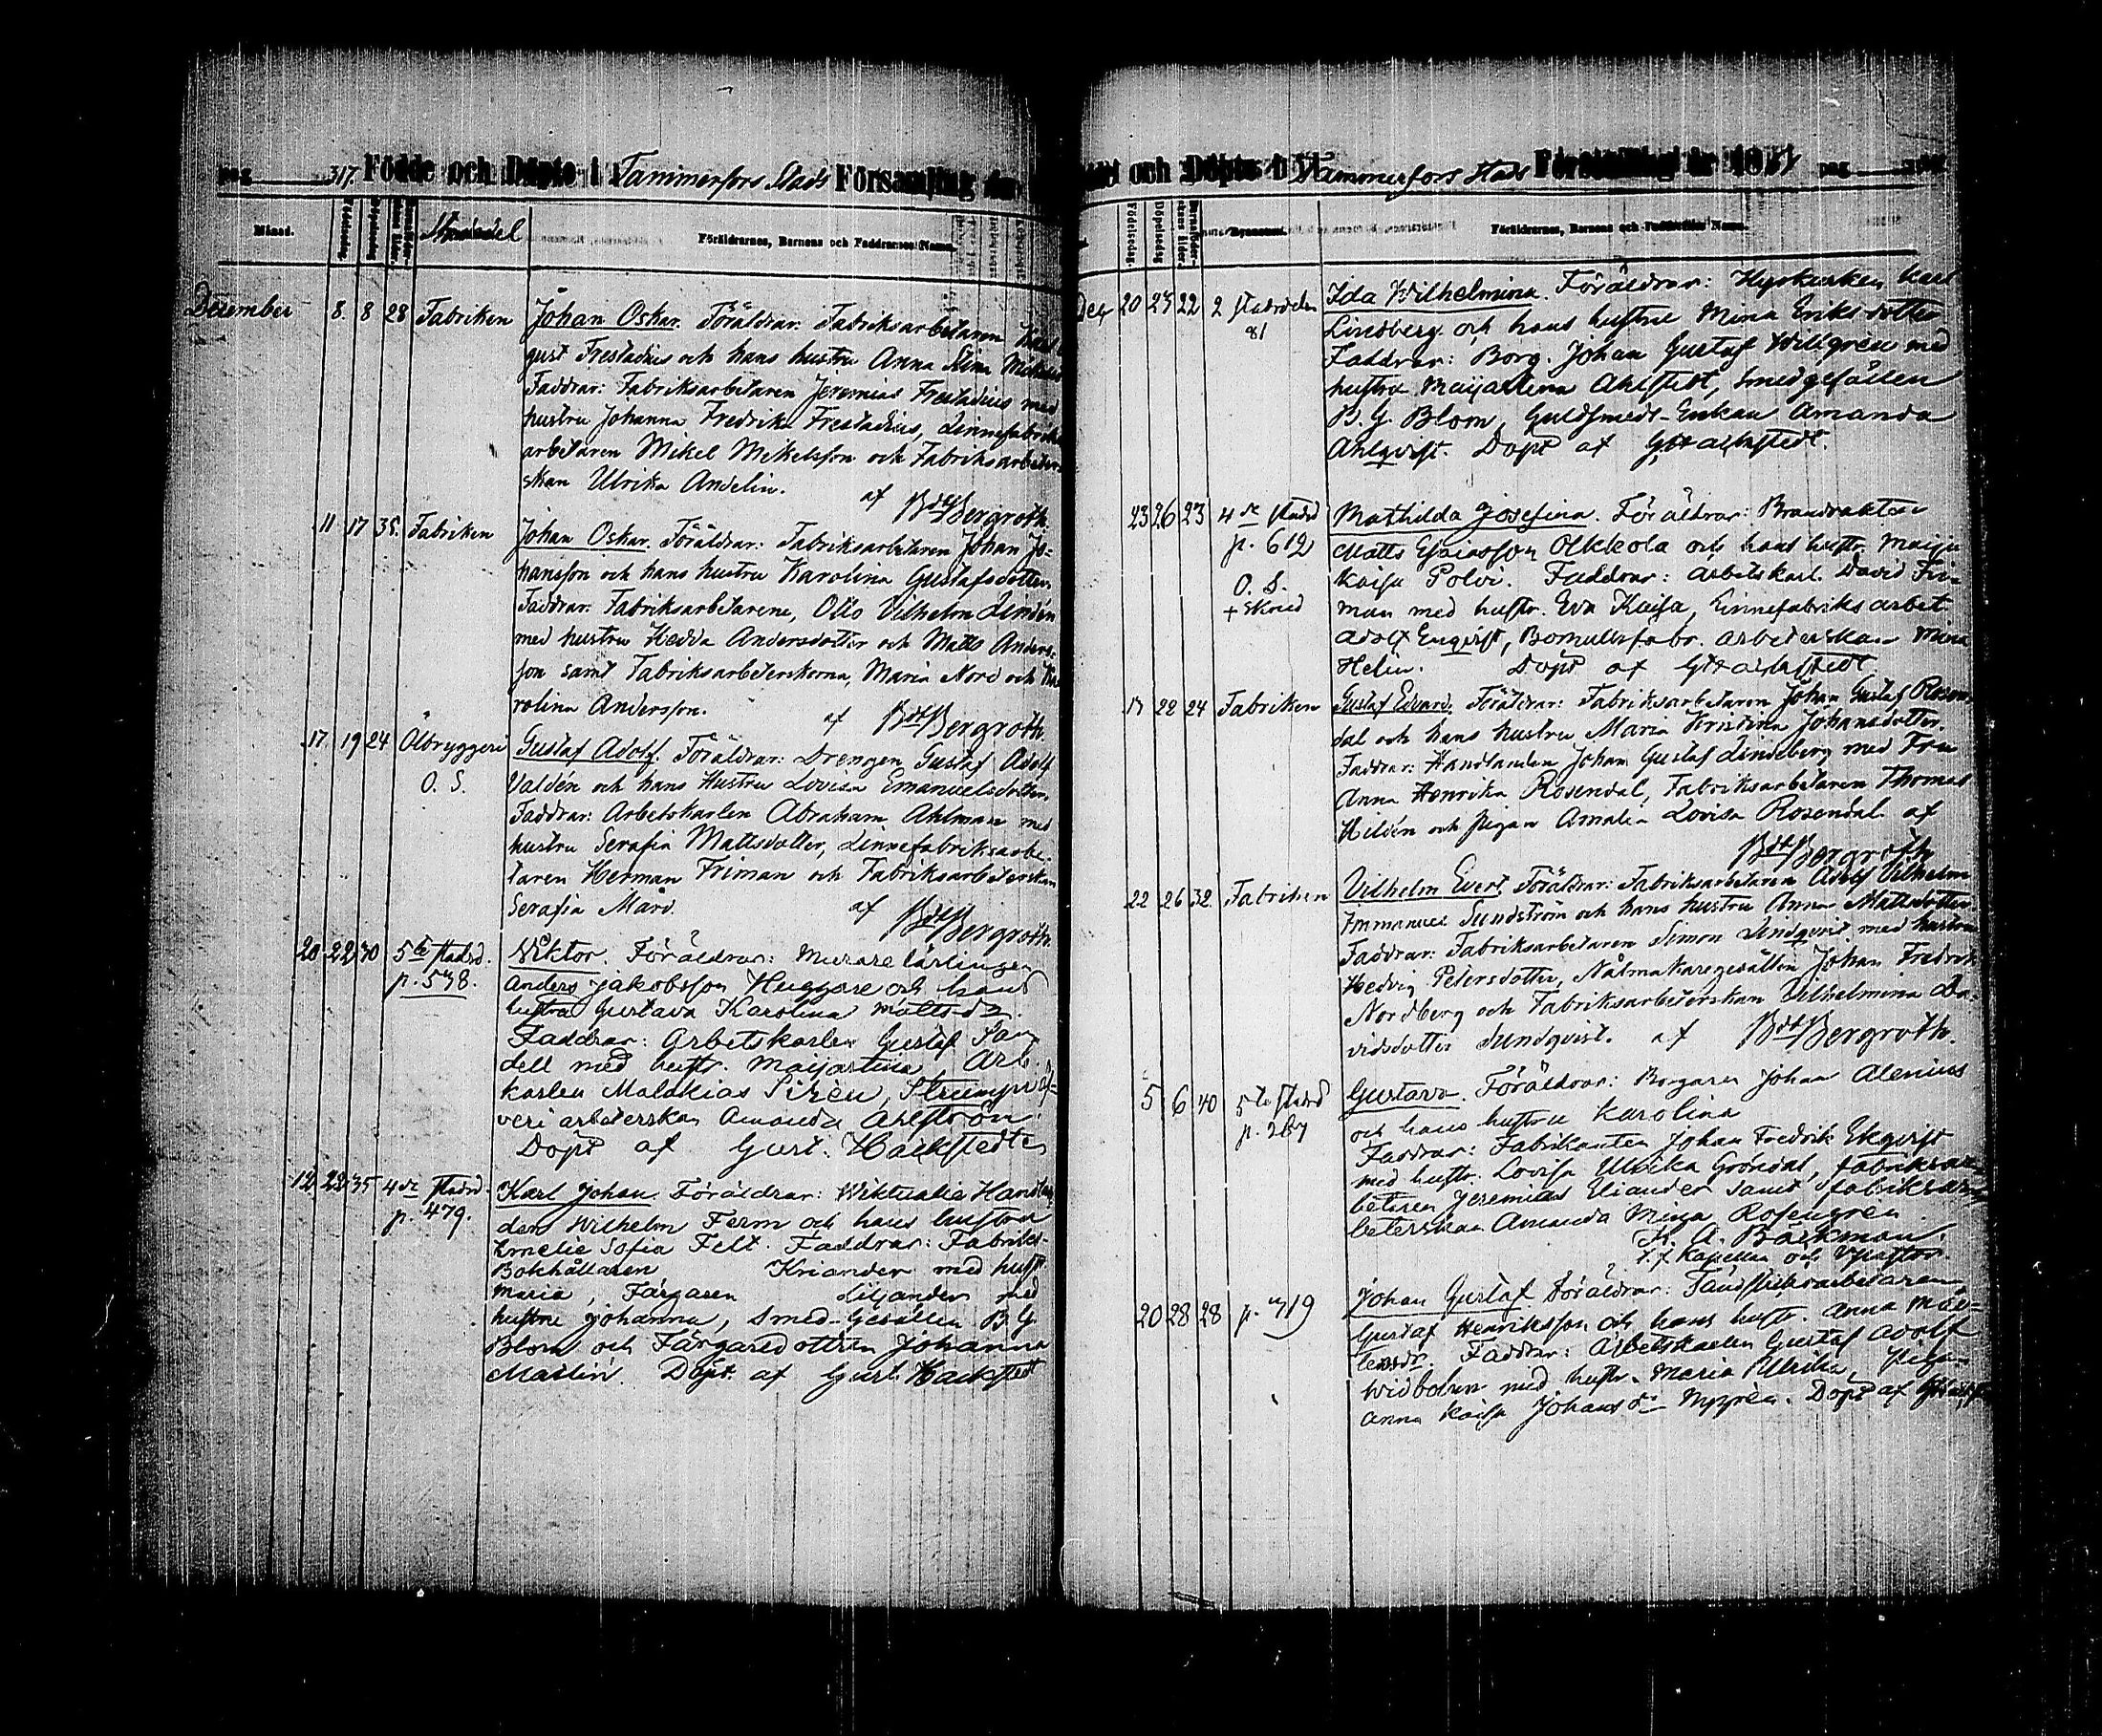 pag. 317. Födde och Döpte i Tammerfors Stads Församling år
Månad. Födelsedag. Döpelsedag. Stadsdel Föräldrarnes, Barnens och Faddrarnes Namn.
December 8. 8 28 Fabriken Johan Oskar. Föräldrar: Fabriksarbetaren Karl
gust Frestadius och hans hustru Anna Stina
Faddrar: Fabriksarbetaren Jeremias Frestadius med
hustru Johanna Fredrika Frestadius, Linnefabriks
arbetaren Mikel Mikelsson och Fabriksarbeter-
skan Ulrika Andelin. af Bergroth.
11 17 35. Fabriken Johan Oskar. Föräldrar: Fabriksarbetaren Johan Jo-
hansson och hans hustru Karolina Gustafsdotter.
Faddrar: Fabriksarbetarene, Otto Vilhelm Lindén
med hustru Hedda Andersdotter och Matts Anders-
son samt Fabriksarbeterskorna, Maria Nord och Ka
rolina Andersson. af Bergroth.
17. 19 24 Ölbryggeri Gustaf Adolf. Föräldrar: Drengen Gustaf Adolf
O. S. Valdén och hans Hustru Lovisa Emanuelsdotter.
Faddrar: Arbetskarlen Abraham Ahlman med
hustru Serafia Mattsdotter, Linnefabriksarbe-
taren Herman Friman och Fabriksarbeterskan
Serafia Mård. af Bergroth
20 22 30 5te stadsd. Viktor. Föräldrar: Murarelärlingen
p. 578. Anders Jakobsson Huggare och hans
hustru Gustava Karolina Mattsdr.
Faddrar: Arbetskarlen Gustaf San
dell med hustr. Maijastina Arb.
karlen Malakias Sirén, Strumpväf-
veri arbeterskan Amanda Ahlström.
Döpt af Gust. Hackstedt
12 22 35 4de stadsd. Karl Johan. Föräldrar: Viktualie Handlan
p. 479. den Wilhelm Ferm och hans hustru
Emelie Sofia Felt. Faddrar: Fabriks-
Bokhållaren Kriander med hust
Maria, Färgaren Liljander med
hustru Johanna, Smed-Gesällen B. G.
Blom och Färgaredottren Johanna
Malin. Döpt af Gust. Hackstedt
och Döpte i Tammerfors Stads Församling år 1871 pag.
Födelsedag. Döpelsedag. Byanamn. Föräldrarnes, Barnens och Faddrarnes Namn.
Dec 20 25 22 2 stadsdelen Ida Wilhelmina. Föräldrar: Hyrkusken Karl
81 Lindberg och hans hustru Mina Eriksdotter
Faddrar: Borg. Johan Gustaf Willgrén med
hustru Maijastina Ahlstedt, Smedgesällen
B. G. Blom, Guldsmeds Enkan Amanda
Ahlqvist. Döpt af G. Hackstedt.
23 26 23 4de stadsd Mathilda Josefina. Föräldrar: Brandvakten
p. 612 Matts Olkkola och hans hustr. Maija
O. S. Kaisa Polvi. Faddrar: Arbetskarl. David Fri-
man med hustr. Eva Kaisa, Linnefabriks arbet
Adolf Enqvist, Bomullsfabr. arbeterskan Mina
Helin. Döpt af G. Hackstedt
17 28 24 Fabriken Gustaf Edvard. Föräldrar: Fabriksarbetaren Johan Gustaf Rosen-
dal och hans hustru Maria Kristina Johansdotter.
Faddrar: Handlanden Johan Gustaf Lindeberg med Fru
Anna Henrika Rosendal, Fabriksarbetaren Thomas
Hildén och pigan Amalia Lovisa Rosendal. af
Bergroth
22 26 32 Fabriken Vilhelm Evert. Föräldrar: Fabriksarbetaren Adolf Vilhelm
Immanuel Sundström och hans hustru Anna Mattsdotter
Faddrar: Fabriksarbetaren Simon Lindqvist med hustru
Hedvig Petersdotter, Nålmakaregesällen Johan Fredrik
Nordberg och Fabriksarbeterskan Vilhelmina Da-
vidsdotter Sundqvist. af Bergroth.
5 6 40 5te stadsd Gustava. Föräldrar: Borgaren Johan Alenius
p. 267 och hans hustru Karolina
Faddrar: Fabrikanten Johan Fredrik Ekqvist
med hustr. Lovisa Ulrika Gröndal, fabriksar-
betaren Jeremias Eliander samt fabriksar-
beterskan Amanda Mina Rosengren.
K. A. Bäckman.
t. f. Kapellan och V pastor.
20 28 28 p. 719 Johan Gustaf. Föräldrar: Tändsticksarbetaren
Gustaf Henriksson och hans hustr. Anna Mår-
tensdr. Faddrar: Arbetskarlen Gustaf Adolf
Widbohm med hustr. Maria Ulrika, pigan
Anna Kaisa Johansdr Nygrén. Döpt af